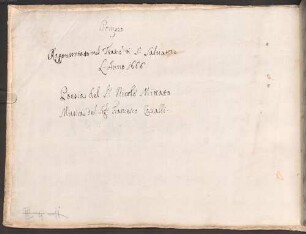 Rapresentato nel Teatro di S. Saluatore
L'Anno 1666
Poesia del S.r Nicolò Minato
Musica del Sig.r Francesco Caualli